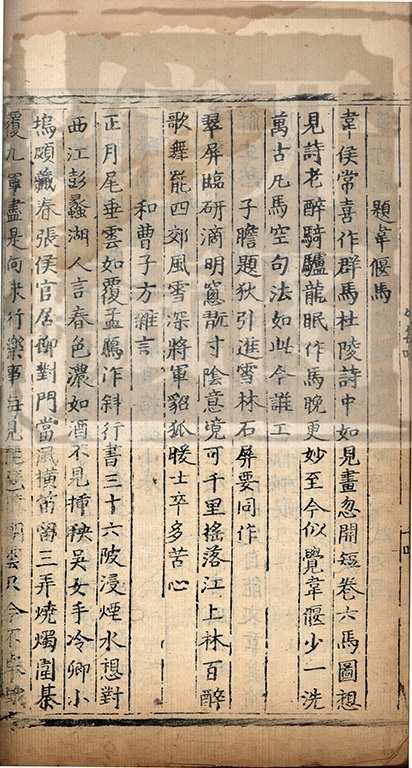 題韋偃馬
韋侯常喜作群馬杜陵詩中如見畫忽開短卷六馬圖想
見詩老醉騎驢龍眠作馬晚更妙至今似覺韋偃少一洗
萬古凡馬空句法如此今誰工
子瞻題狄引進雪林石屏要同作
翠屏臨研滴明窻翫寸陰意境可千里搖落江上林百醉
歌舞罷四郊風雪深將軍貂狐暖士卒多苦心
和曹子方雜言
正月尾垂雲如覆盂鴈作斜行書三十六陂浸煙水想對
西江彭蠡湖人言春色濃如酒不見插秧吳女手冷卿小
塢頗藏春張侯官居柳對門當風橫笛留三弄燒燭圍棊
覆九軍盡是向來行樂事每見朝雲只今不舉蛾